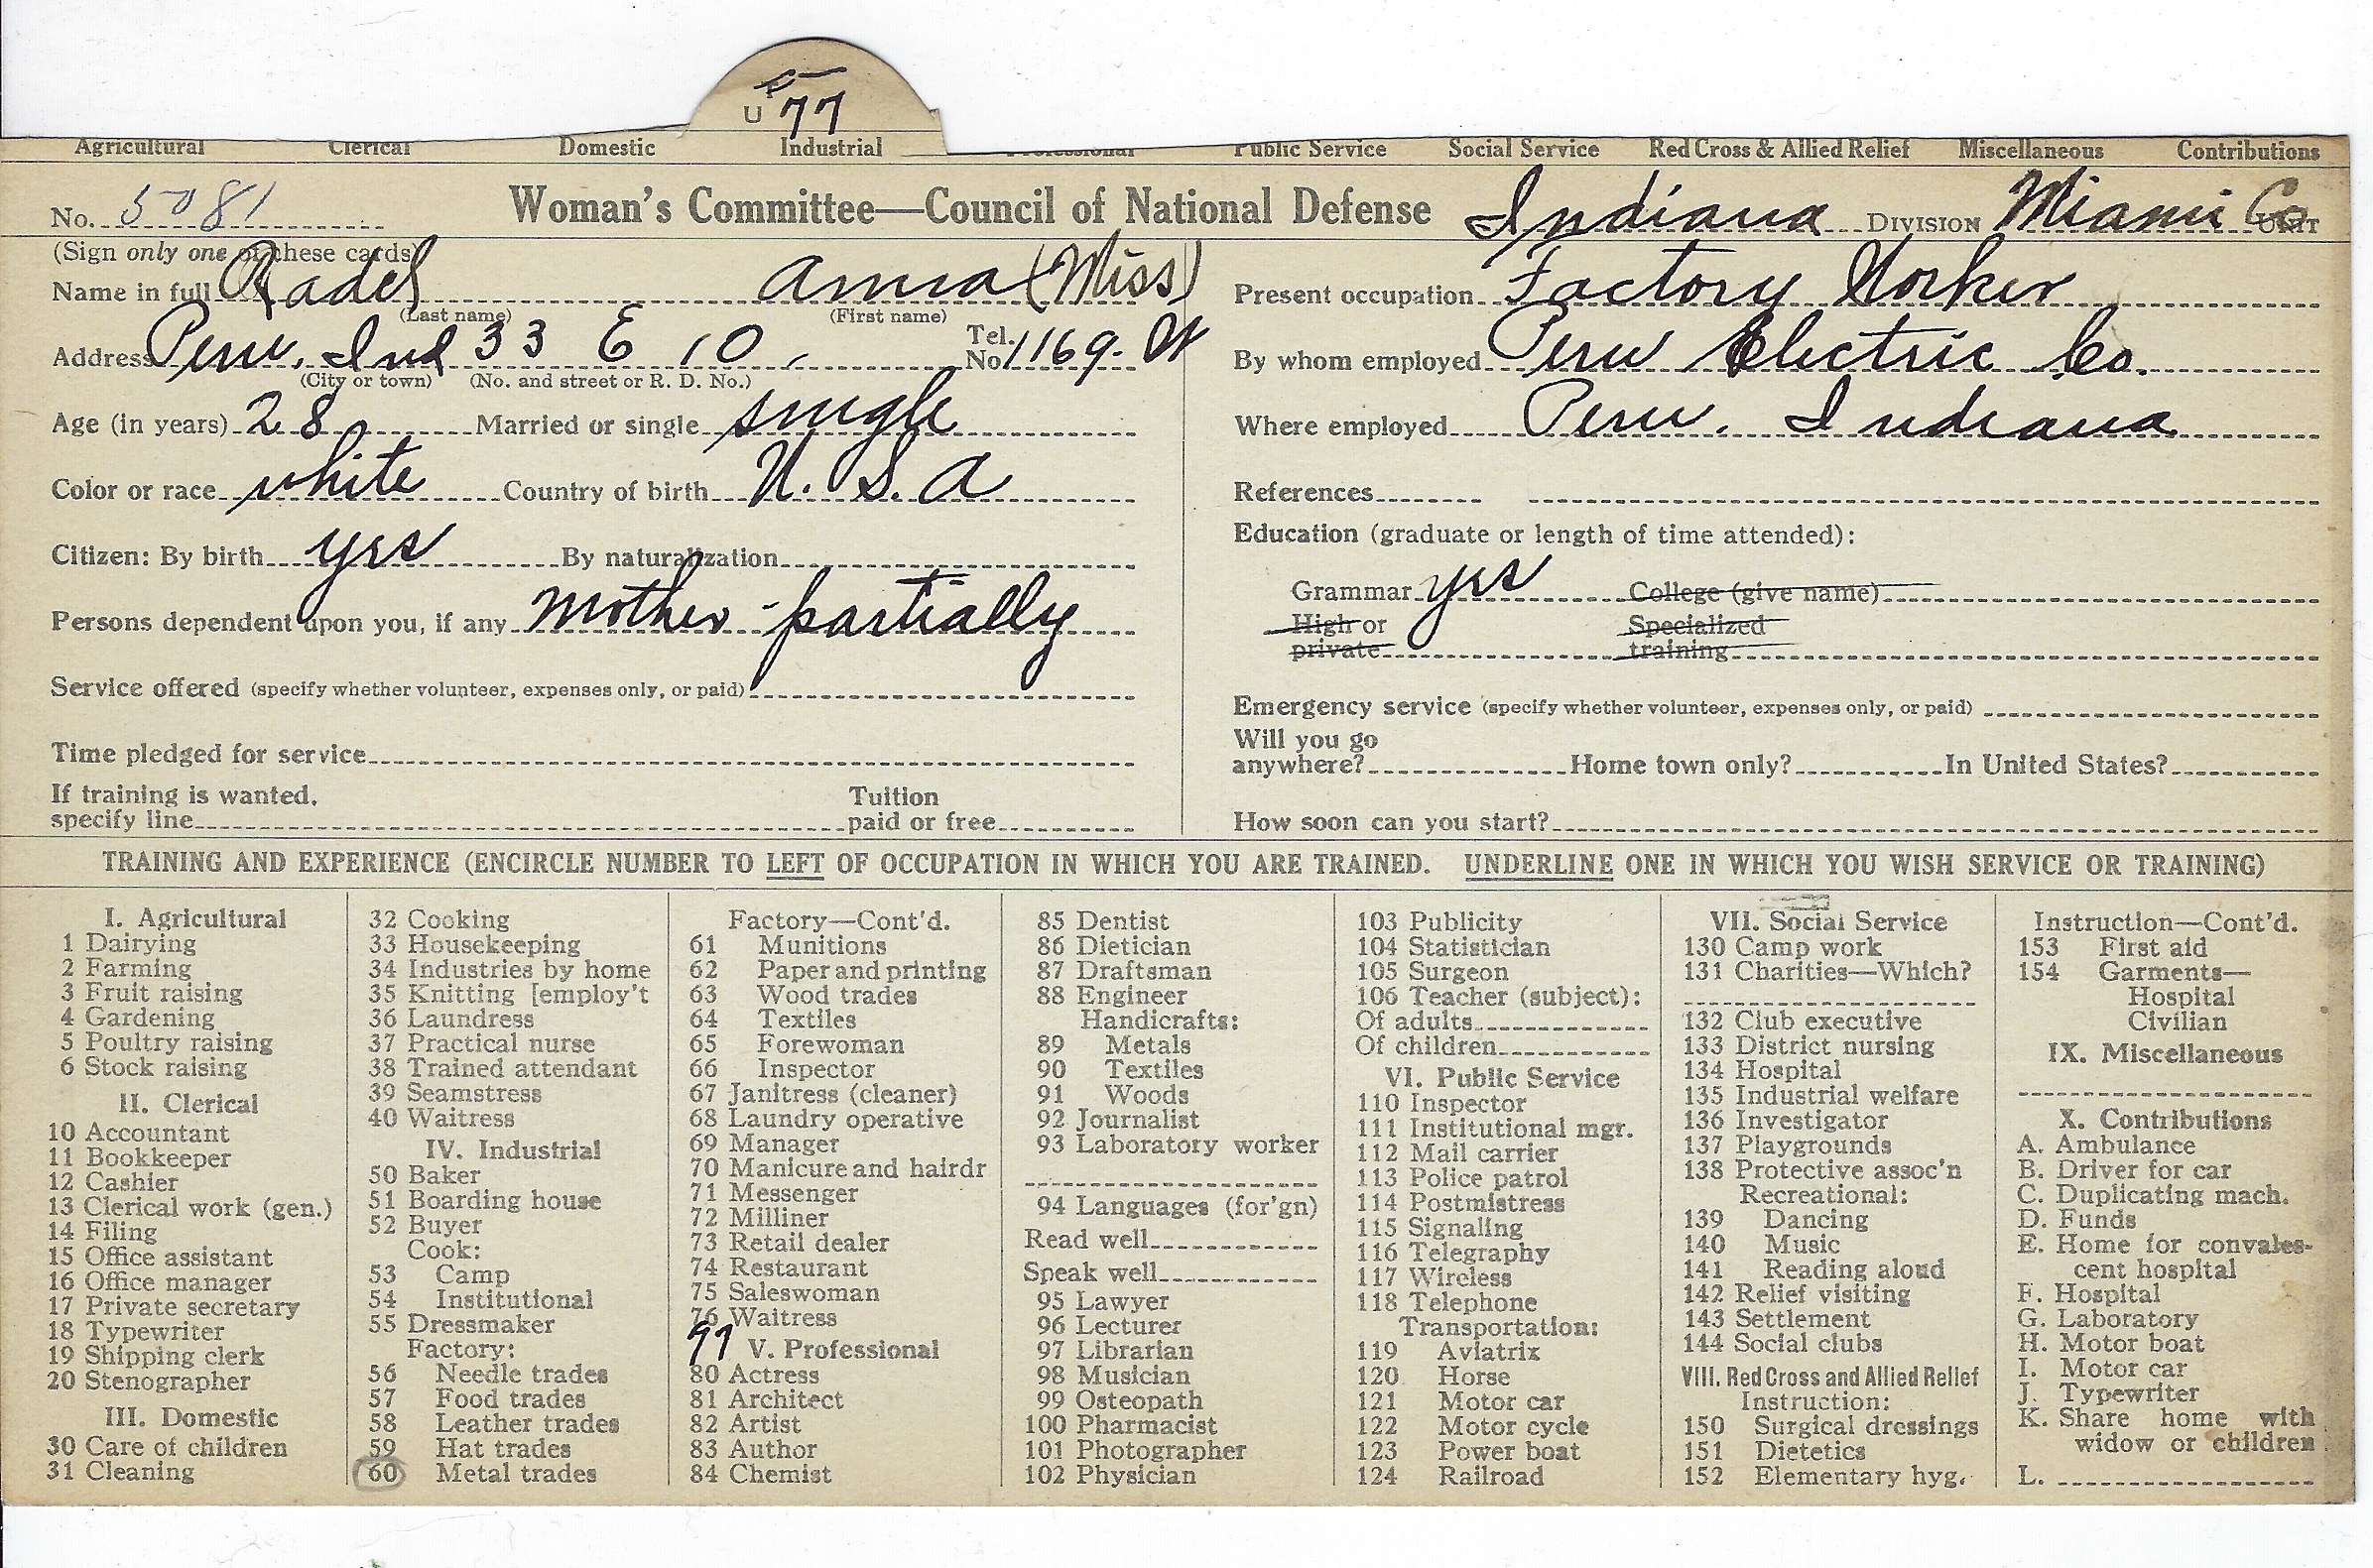 U 77
Agricultural Clerical Domestic Industrial Professional Public Service Social Service Red Cross & Allied Relief Miscellaneous Contributions
No. 5081 Woman's Committee—Council of National Defense Indiana DIVISION Miami Co UNIT
(Sign only one of these cards)
Name in full Radel Anna (Miss)
(Last name) (First name)
Address Peru, Ind 33 E 10, Tel. No 1169-W
(City or town) (No. and street or R. D. No.)
Age (in years) 28 Married or single single
Color or race white Country of birth U. S. A
Citizen: By birth yes By naturalization
Persons dependent upon you, if any Mother - partially
Service offered (specify whether volunteer, expenses only, or paid)
Time pledged for service
If training is wanted, specify line Tuition paid or free
Present occupation Factory Worker
By whom employed Peru Electric Co.
Where employed Peru, Indiana
References
Education (graduate or length of time attended):
Grammar yes College (give name)
High or private Specialized training
Emergency service (specify whether volunteer, expenses only, or paid)
Will you go anywhere? Home town only? In United States?
How soon can you start?
TRAINING AND EXPERIENCE (ENCIRCLE NUMBER TO LEFT OF OCCUPATION IN WHICH YOU ARE TRAINED. UNDERLINE ONE IN WHICH YOU WISH SERVICE OR TRAINING)
I. Agricultural
1 Dairying
2 Farming
3 Fruit raising
4 Gardening
5 Poultry raising
6 Stock raising
II. Clerical
10 Accountant
11 Bookkeeper
12 Cashier
13 Clerical work (gen.)
14 Filing
15 Office assistant
16 Office manager
17 Private secretary
18 Typewriter
19 Shipping clerk
20 Stenographer
III. Domestic
30 Care of children
31 Cleaning
32 Cooking
33 Housekeeping
34 Industries by home
35 Knitting [employ't
36 Laundress
37 Practical nurse
38 Trained attendant
39 Seamstress
40 Waitress
IV. Industrial
50 Baker
51 Boarding house
52 Buyer
Cook:
53 Camp
54 Institutional
55 Dressmaker
Factory:
56 Needle trades
57 Food trades
58 Leather trades
59 Hat trades
60 Metal trades
Factory—Cont'd.
61 Munitions
62 Paper and printing
63 Wood trades
64 Textiles
65 Forewoman
66 Inspector
67 Janitress (cleaner)
68 Laundry operative
69 Manager
70 Manicure and hairdr
71 Messenger
72 Milliner
73 Retail dealer
74 Restaurant
75 Saleswoman
76 Waitress
97 V. Professional
80 Actress
81 Architect
82 Artist
83 Author
84 Chemist
85 Dentist
86 Dietician
87 Draftsman
88 Engineer
Handicrafts:
89 Metals
90 Textiles
91 Woods
92 Journalist
93 Laboratory worker
94 Languages (for'gn)
Read well
Speak well
95 Lawyer
96 Lecturer
97 Librarian
98 Musician
99 Osteopath
100 Pharmacist
101 Photographer
102 Physician
103 Publicity
104 Statistician
105 Surgeon
106 Teacher (subject):
Of adults
Of children
VI. Public Service
110 Inspector
111 Institutional mgr.
112 Mail carrier
113 Police patrol
114 Postmistress
115 Signaling
116 Telegraphy
117 Wireless
118 Telephone
Transportation:
119 Aviatrix
120 Horse
121 Motor car
122 Motor cycle
123 Power boat
124 Railroad
VII. Social Service
130 Camp work
131 Charities—Which?
132 Club executive
133 District nursing
134 Hospital
135 Industrial welfare
136 Investigator
137 Playgrounds
138 Protective assoc'n
Recreational:
139 Dancing
140 Music
141 Reading aloud
142 Relief visiting
143 Settlement
144 Social clubs
VIII. Red Cross and Allied Relief
Instruction:
150 Surgical dressings
151 Dietetics
152 Elementary hyg.
Instruction—Cont'd.
153 First aid
154 Garments—
Hospital
Civilian
IX. Miscellaneous
X. Contributions
A. Ambulance
B. Driver for car
C. Duplicating mach.
D. Funds
E. Home for convales-
cent hospital
F. Hospital
G. Laboratory
H. Motor boat
I. Motor car
J. Typewriter
K. Share home with
widow or children
L.